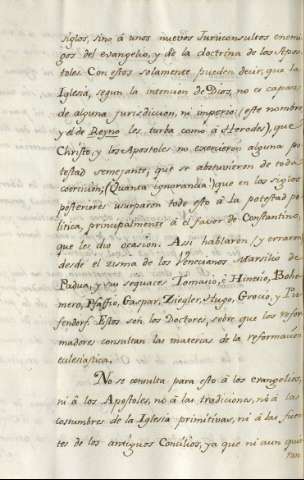 siglos, sino á unos nuevos Jurisconsultos enemi
gos del evangelio, y de la doctrina de los Apos
toles. Con estos solamente pueden decir, que la
Iglesia, segun la intencion de Dios, no es capaz
de alguna jurisdiccion, ni imperio (este nombre
y el de Reyno les turba como á Herodes), que
Christo, y los Apostoles no exercieron alguna po
testad semejante, que se abstuvieron de toda
coercion, (Quanta ignorancia) que en los siglos
posteriores usurparon todo esto á la potestad po
litica, principalmente á el favor de Constantino,
que les dio ocasion. Asi hablaron, y erraron
desde el zisma de los Marsilio de
Padua, y sus seguaces Tomasio, Bohe
mero, Pfaffio, Gaspar, Ziegler, Hugo, Grocio, y Pu
fendorf. Estos son los Doctores, sobre que los refor
madores consultan las materias de la reformacion
eclesiastica.
No se consulta para esto á los evangelios,
ni á los Apostoles, no á las tradiciones, ni á las
costumbres de la Iglesia primitivas, ni á las fuen
tes de los antiguos Concilios, ya que ni aun quie
ran